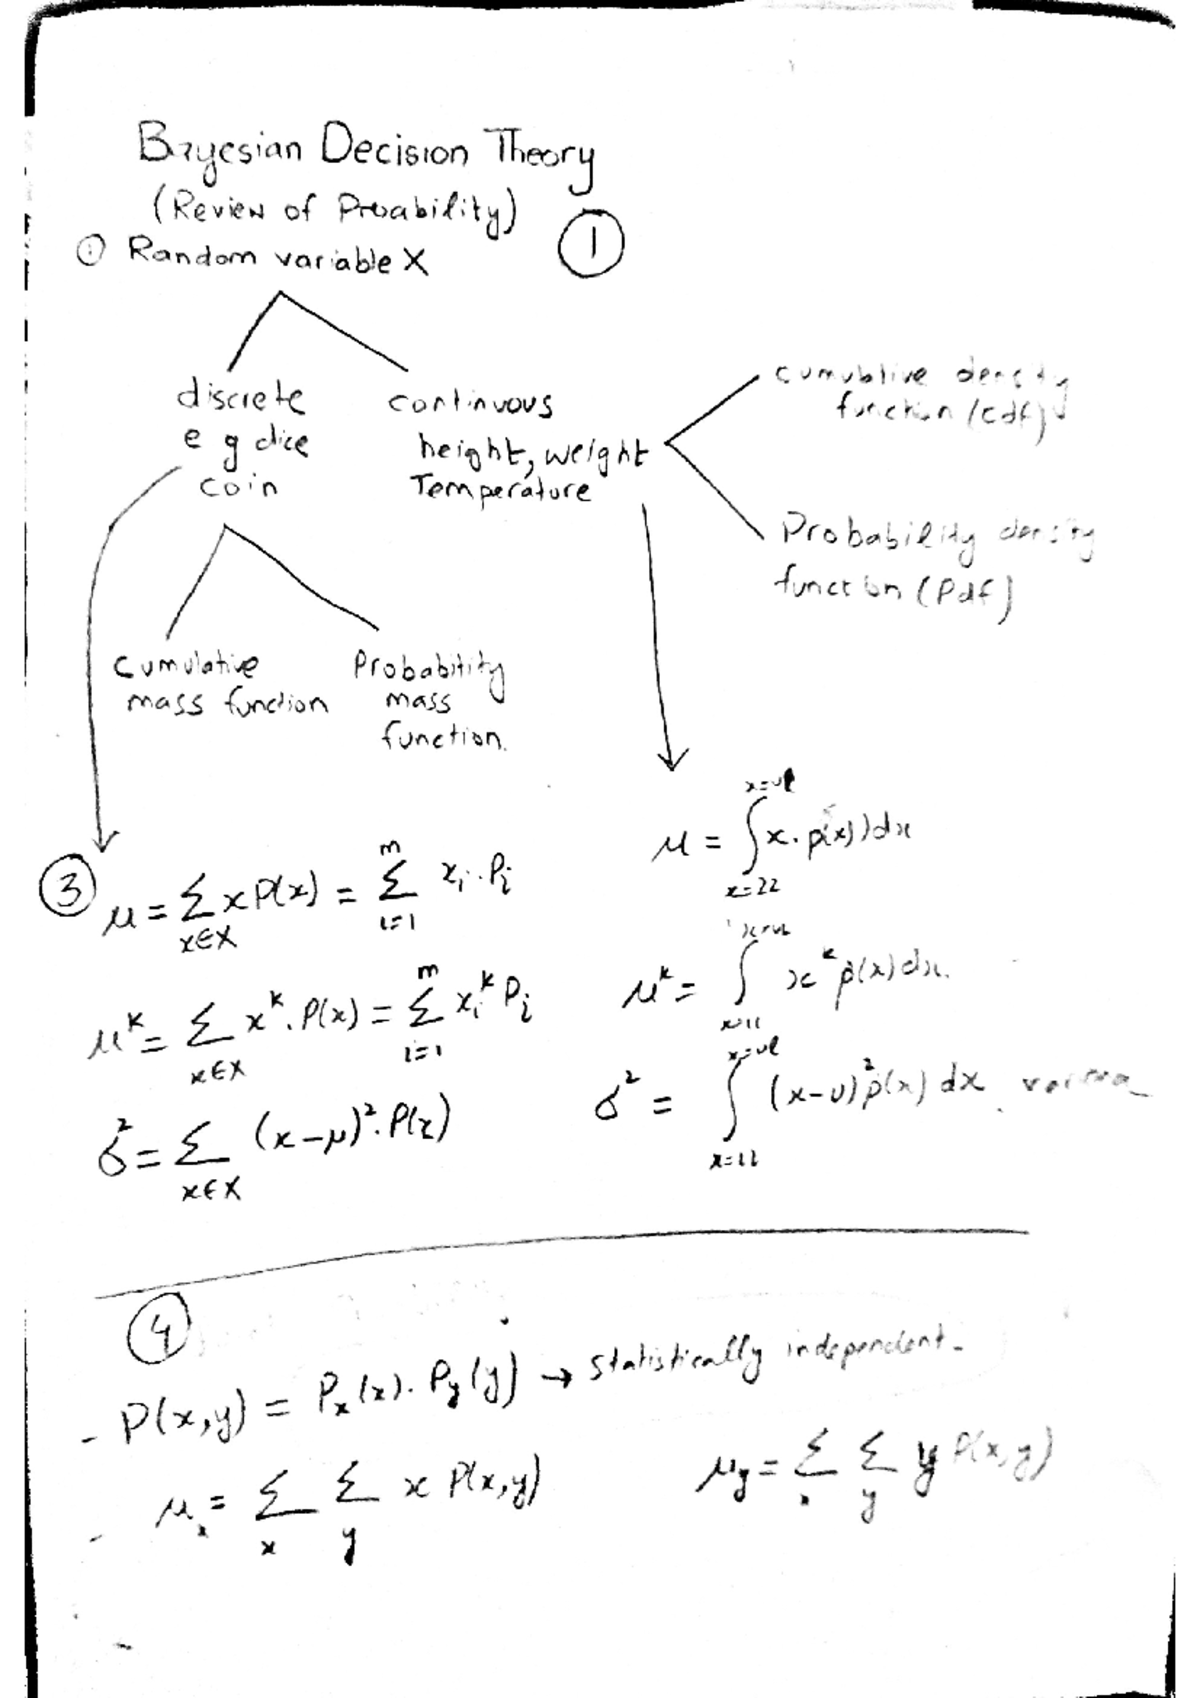 Bayesian Decision Theory
(Review of Proability)
①
① Random variable X
discrete
e g dice
coin
continuous
height, weight
Temperature
cumulative density
function (cdf)
Probability density
function (Pdf)
cumulative
mass function
Probability
mass
function.
③
μ = Σ x P(x) = Σ xᵢ . Pᵢ
x∈X
m
i=1
μᵏ = Σ xᵏ. P(x) = Σ xᵢᵏ Pᵢ
x∈X
m
i=1
σ² = Σ (x-μ)². P(x)
x∈X
x=ul
μ = ∫ x. p(x)) dx
x=ll
μᵏ = ∫ xᵏ p(x) dx.
x=ul
σ² = ∫ (x-υ)² p(x) dx
x=ll
④
- P(x,y) = Pₓ(x). Py(y) → statistically independent.
- μₓ = Σ Σ x P(x,y)
x y
μy = Σ Σ y P(x,y)
x y